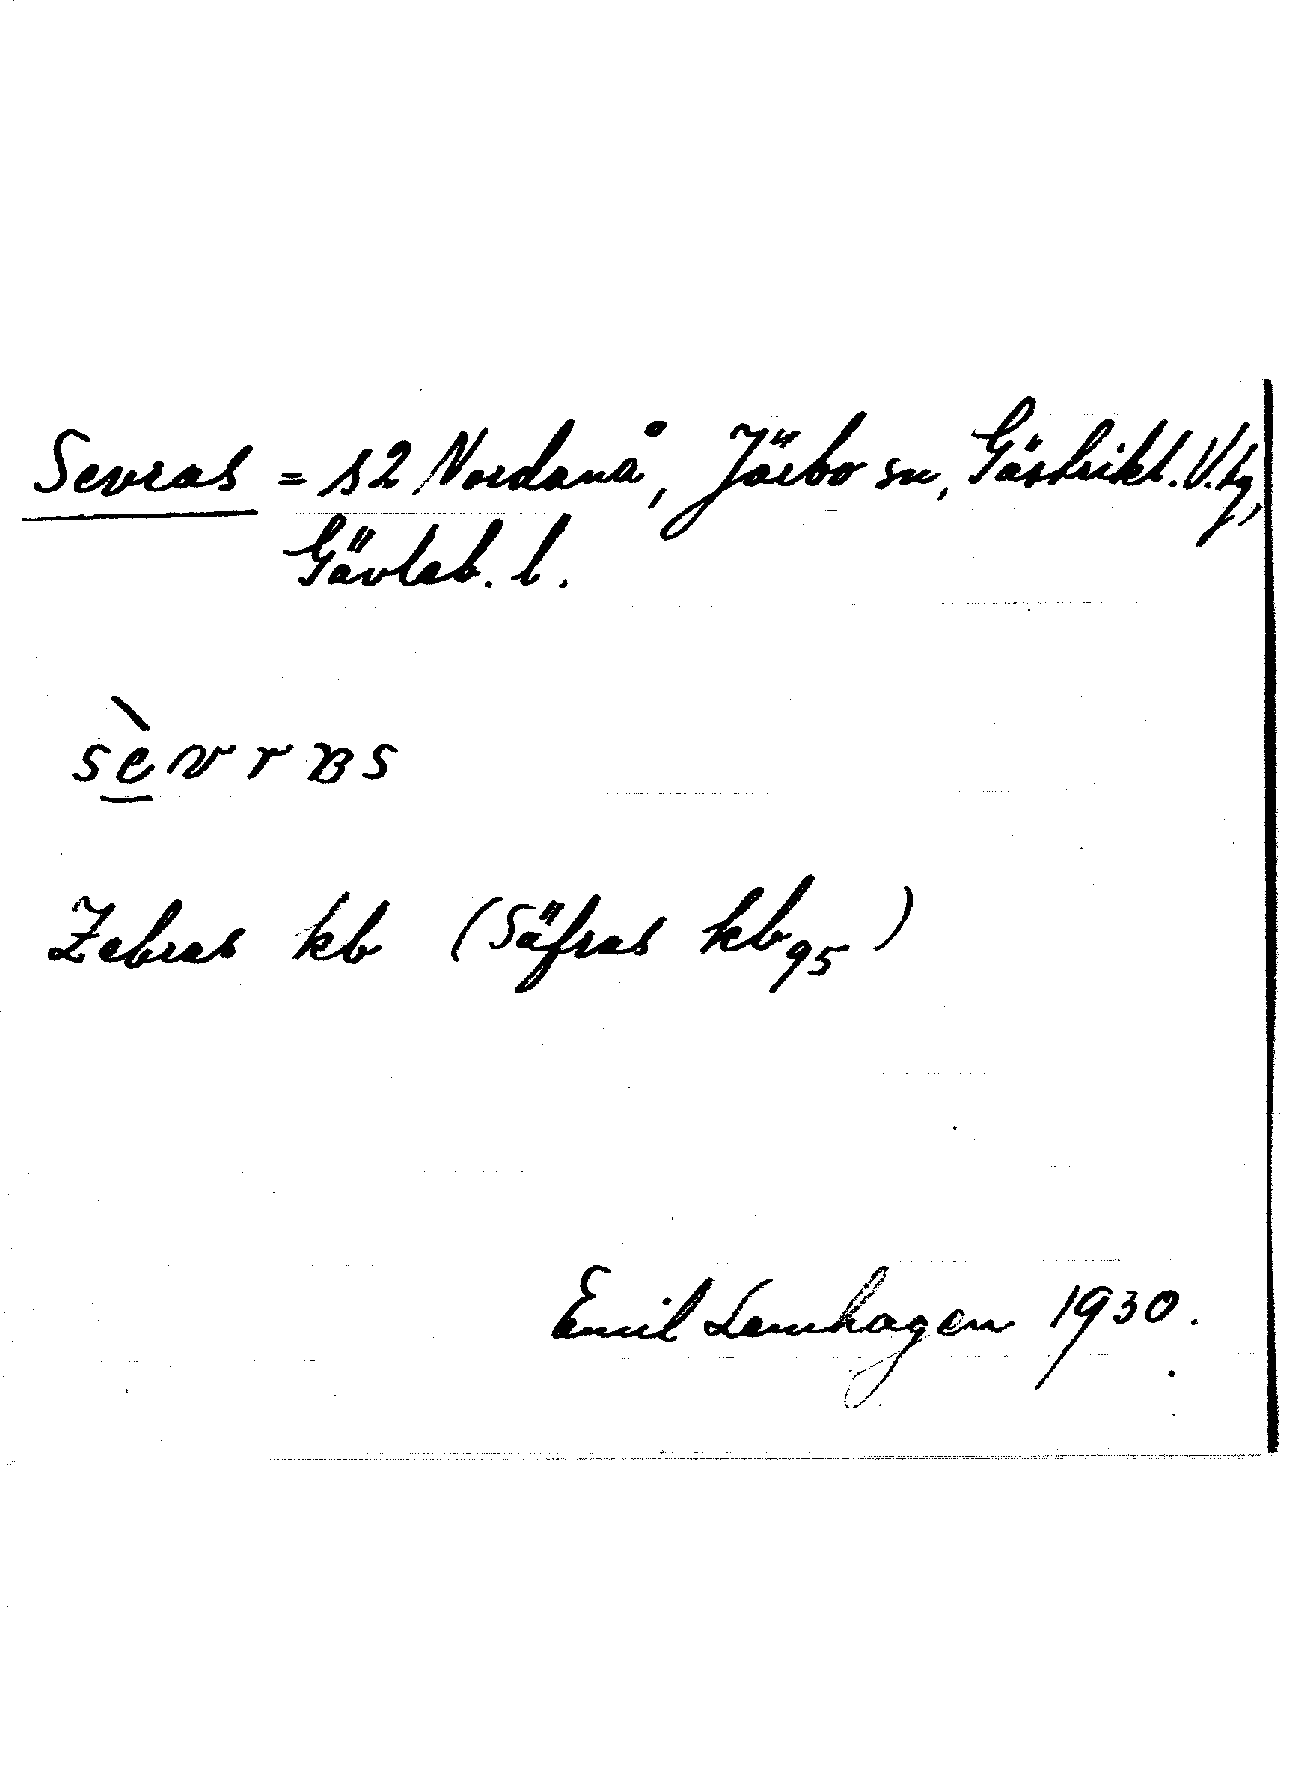 Sevras = 12 Nordanå, Järbo sn, Gästrikl. V. tg,
Gävleb. l.
sèvrʙs
Zebras kb (Säfras kb95)
Emil Lennhagen 1930.